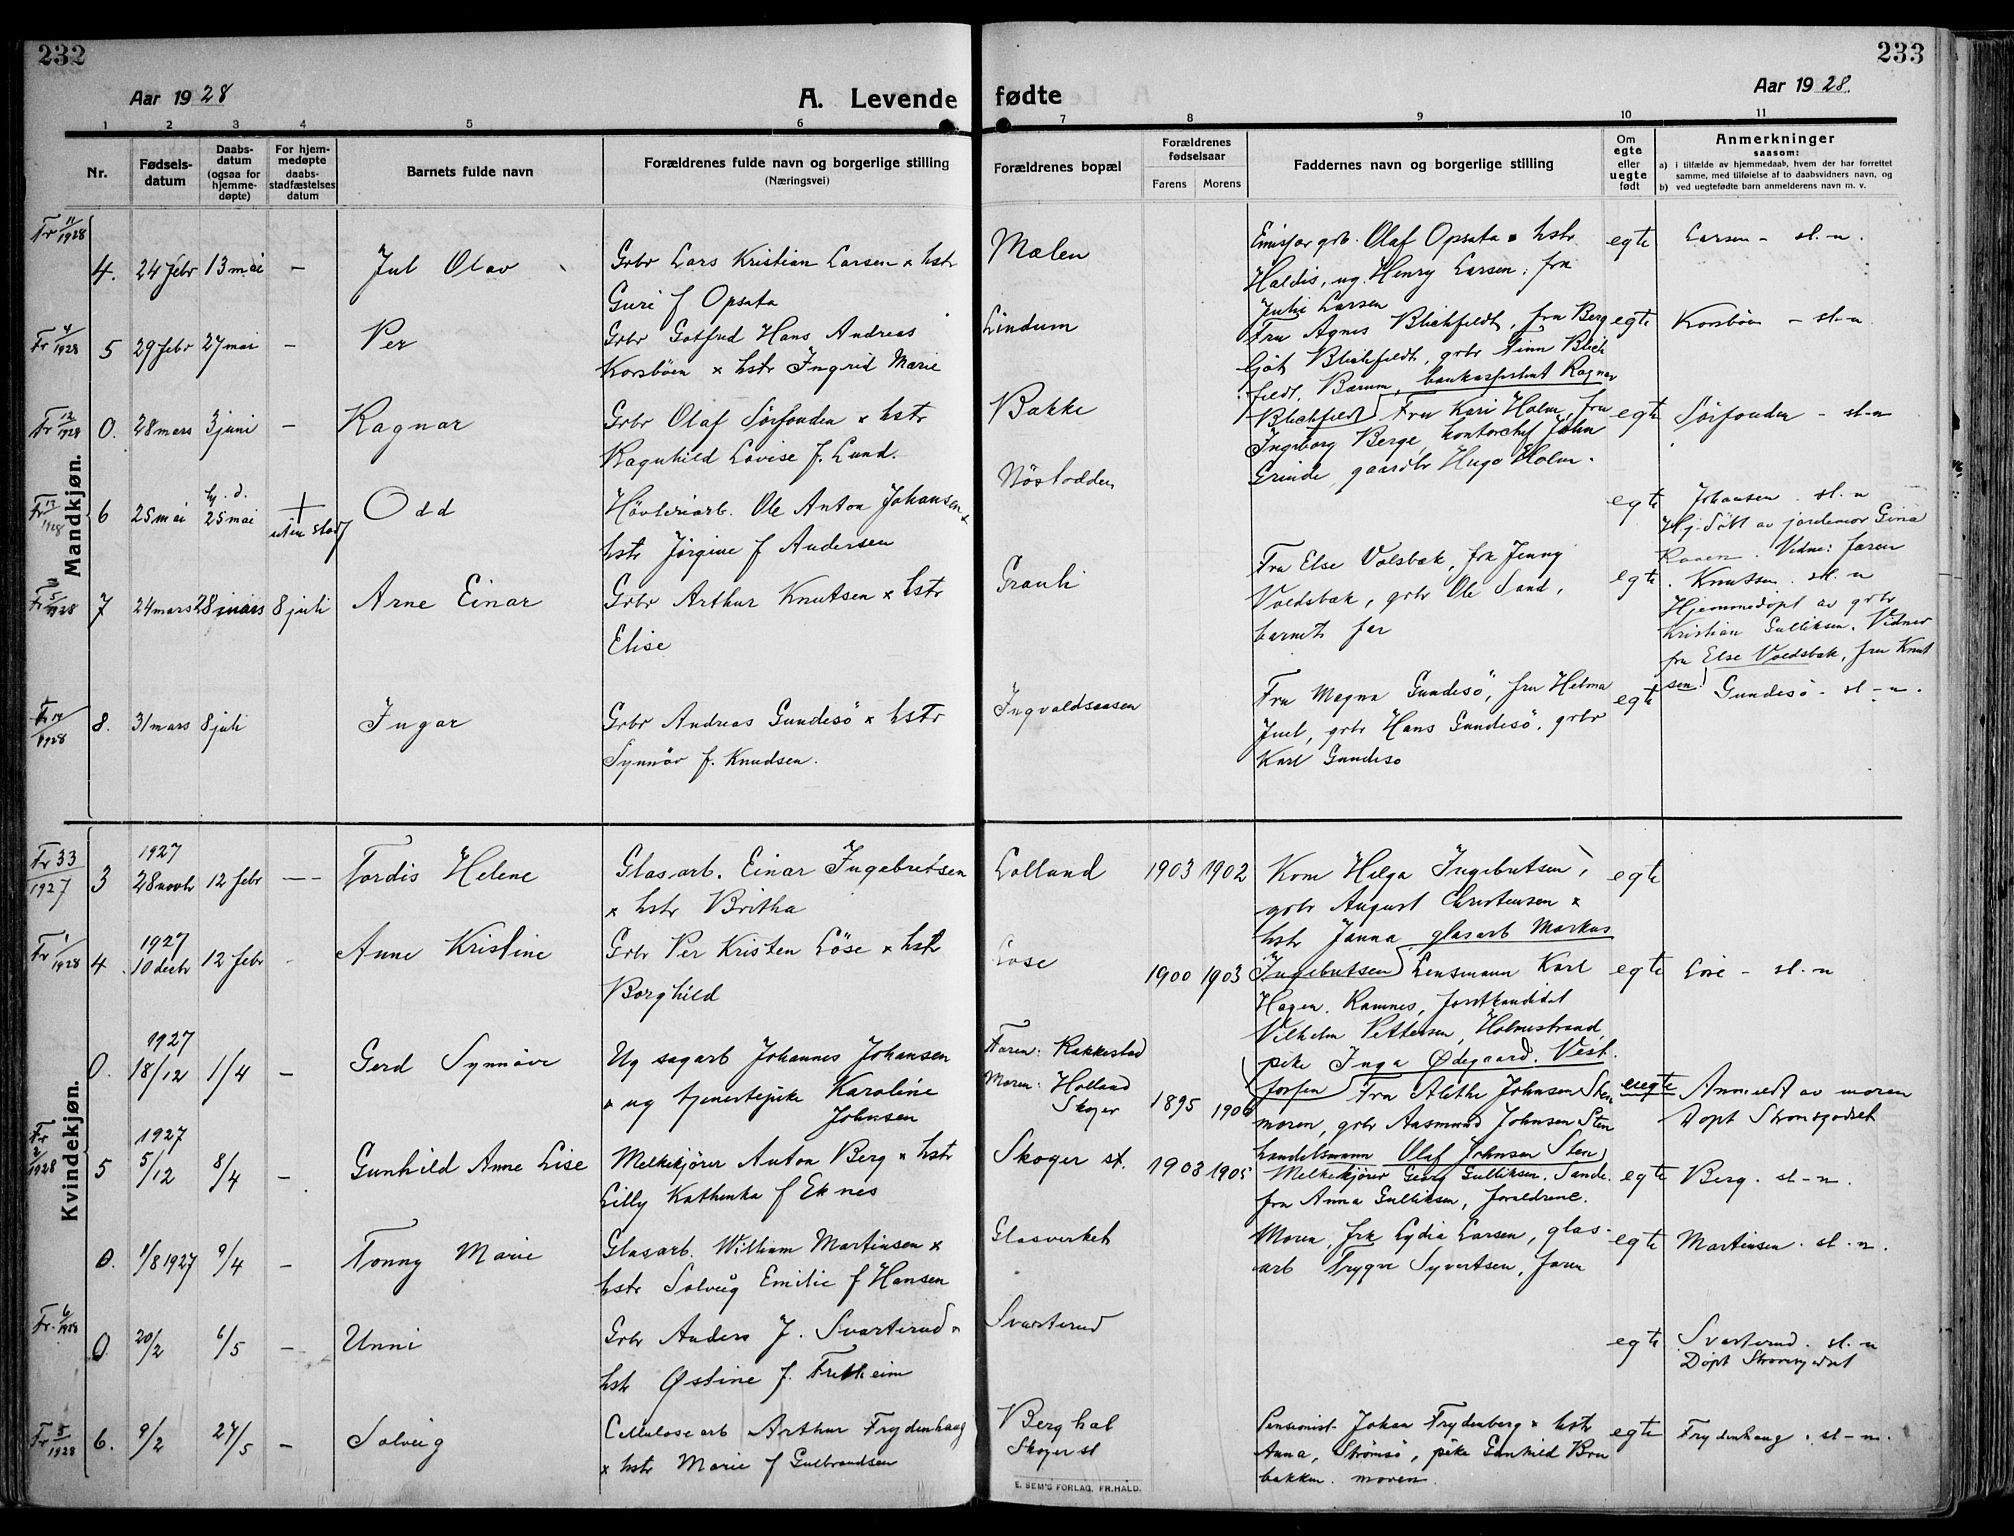 232
233
Aar 1928
A. Levende fødte
Aar 1928.
1 2 3 4 5 6 7 8 9 10 11
Nr.
Fødsels-
datum
Daabs-
datum
(ogsaa for
hjemme-
døpte)
For hjem-
medøpte
daabs-
stadfæstelses
datum
Barnets fulde navn
Forældrenes fulde navn og borgerlige stilling
(Næringsvei)
Forældrenes bopæl
Forældrenes
fødselsaar
Farens
Morens
Faddernes navn og borgerlige stilling
Om
egte
eller
uegte
født
Anmerkninger
saasom:
a) i tilfælde av hjemmedaab, hvem der har forrettet
samme, med tilføielse af to daabsvidners navn, og
b) ved uegtefødte barn anmelderens navn m. v.
Mandkjøn.
Fr 11/1928
4. 24 febr 13 mai — Jul Olav
Grbr Lars Kristian Larsen x hstr
Guri f Opsata
Mælen
grb. Olaf Opsata x hstr
Haldis, ug. Henry Larsen, frk
Julie Larsen
egte
Larsen — st.-n.
Fr 4/1928
5 29 febr 27 mai — Per
Grbr Gotfred Hans Andreas
Korsbøen x hstr Ingrid Marie
Lindum
Fru Agnes Blichfeldt, fru Berg
ljót Blichfeldt, grbr Finn Blich
feldt, Bærum, bankassistent Ragnar
Blichfeldt
egte
Korsbøen — st.-n
Fr 12/1928
0. 28 mars 3 juni — Ragnar
Grbr Olaf Sørfonden x hstr
Ragnhild Lovise f. Lund.
Bakke
Fru Kari Holm, fru
Ingeborg Berge, kontorchef John
Grinde, gaardbr Hugo Holm.
egte
Sørfonden — st-n
Fr 13/1928
6 25 mai hj. d. 25 mai + uten stadf Odd
Høvleriarb. Ole Anton Johansen x
hstr Jørgine f Andersen
Nøstodden
egte
Johansen. st.-n
Hj. døbt av jordemor Gina
Vidne: faren
Fr 5/1928
7 24 mars 28 mars 8 juli Arne Einar
Grbr Arthur Knutsen x hstr
Elise
Granli
Fru Else Volsbak, frk Jenny
Voldsbak, grbr Ole Sand,
barnets far
egte
Knutsen. st.-n
Hjemmedøpt av grbr
Kristian Gulliksen. Vidner
fru Else Voldsbak, fru Knut
sen
Fr 14/1928
8. 31 mars 8 juli Ingar
Grbr Andreas Gundesø x hstr
Synnøv f. Knudsen.
Ingvaldsaasen
Fru Magna Gundesø, fru Helma
Juel, grbr Hans Gundesø, grbr
Karl Gundesø
egte
Gundesø — st-n.
Kvindekjøn.
Fr 33/1927
3 1927 28 novbr 12 febr — Tordis Helene
Glasarb. Einar Ingebretsen
x hstr Britha
Lolland
1903 1902
Kone Helga Ingebretsen,
grbr August Christensen x
hstr Janna, glasarb Markus
Ingebretsen
egte
Fr 1/1928
4 1927 10 decbr 12 febr Anne Kristine
Grbr Per Kristen Løse x hstr
Borghild
Løse
1900 1903
Lensmann Karl
Hagen, Ramnes, forstkandidat
Vilhelm Pettersen, Holmestrand,
pike Inga Ødegaard. Vest
fossen
egte
Løse — st.-n
0. 1927 18/12 1/4 — Gerd Synnøve
Ug sagarb Johannes Johansen
x ug tjenestepike Karoline
Johnsen
Faren: Rakkestad
Moren: Holland
Skoger
1895 1906
Fru Alethe Johnsen Sten
moren, grbr Aasmund Johnsen Sten
handelsmann Olaf Johnsen Sten
uegte
Anmeldt av moren
Døpt Strømsgodset
Fr 2/1928
5 1927 5/12 8/4 — Gunhild Anne Lise
Melkekjører Anton Berg x hstr
Lilly Kathenka f Eknes
Skoger st.
1903 1905
Melkekjører Georg Gulliksen, Sande.
fru Anna Gulliksen, forældrene.
egte
Berg. st-n.
0. 1/8 1927 9/4 — Tonny Marie
Glasarb. William Martinsen x
hstr Solveig Emilie f Hansen
Glasverket
Moren, frk Lydia Larsen, glas-
arb Trygve Syvertsen, faren
egte
Martinsen. st.-n.
Fr. 6/1928
0 20/2 6/5 — Unni
Grbr Anders J. Svarterud x
hstr Østine f. Fretheim
Svarterud
egte
Svarterud. st.-n
Døpt Strømsgodset
Fr 5/1928
6. 9/2 27/5 — Solveig
Cellulosearb Arthur Frydenhaug
x hstr Marie f Gulbrandsen
Berg hal
Skoger st
Pensionist Johan Frydenberg x hstr
Anna, Strømsø, pike Gunhild Bru
bakken. moren.
egte
Frydenhaug. st-n.
E. SEM'S FORLAG, FR.HALD.